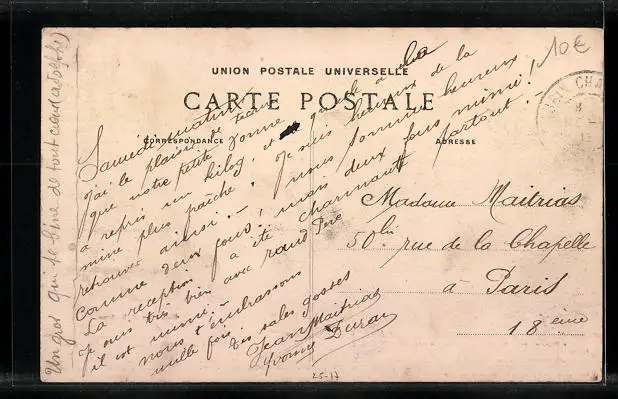 UNION POSTALE UNIVERSELLE
CARTE POSTALE
CORRESPONDANCE
ADRESSE
10€
Samedi matin
J'ai le plaisir de
que notre petite Yvonne
a repris un kilog, et qu'elle a la
mine plus fraîche. Je suis heureux de la
retrouver ainsi. - nous sommes heureux
comme deux fous, mais deux fous mimi!
La réception a été charmante partout. -
Je suis très bien avec Père
il est mimi -
nous t'embrassons
mille fois.
tes sales gosses
Jean Maitrias
Yvonne Duran
Un gros qui se
Madame Maitrias
50 bis rue de la Chapelle
à Paris
18ème
25-17